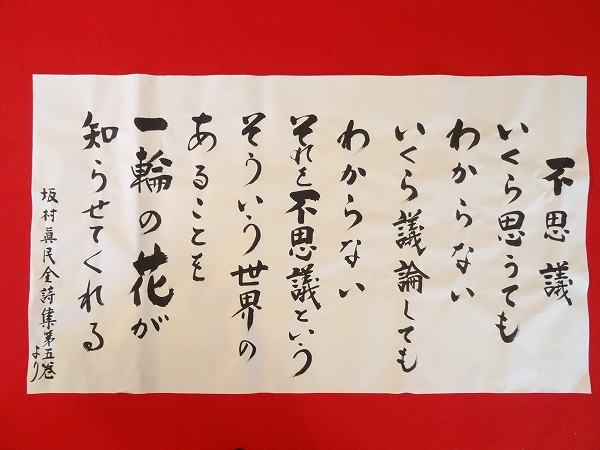 不思議
いくら思うても
わからない
いくら議論しても
わからない
それを不思議という
そういう世界の
あることを
一輪の花が
知らせてくれる
坂村眞民全詩集第五巻
より